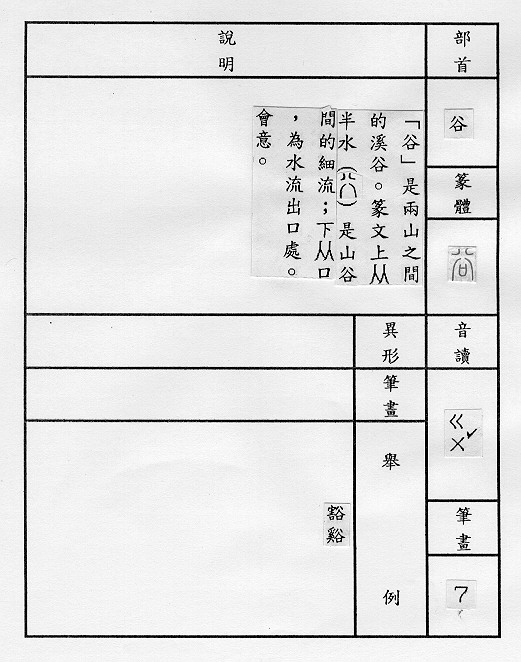 部首
谷
篆體
音讀
ㄍㄨˇ
筆畫
7
說明
「谷」是兩山之間
的溪谷。篆文上从
半水（）是山谷
間的細流；下从口
，為水流出口處。
會意。
異形
筆畫
舉例
豁
谿